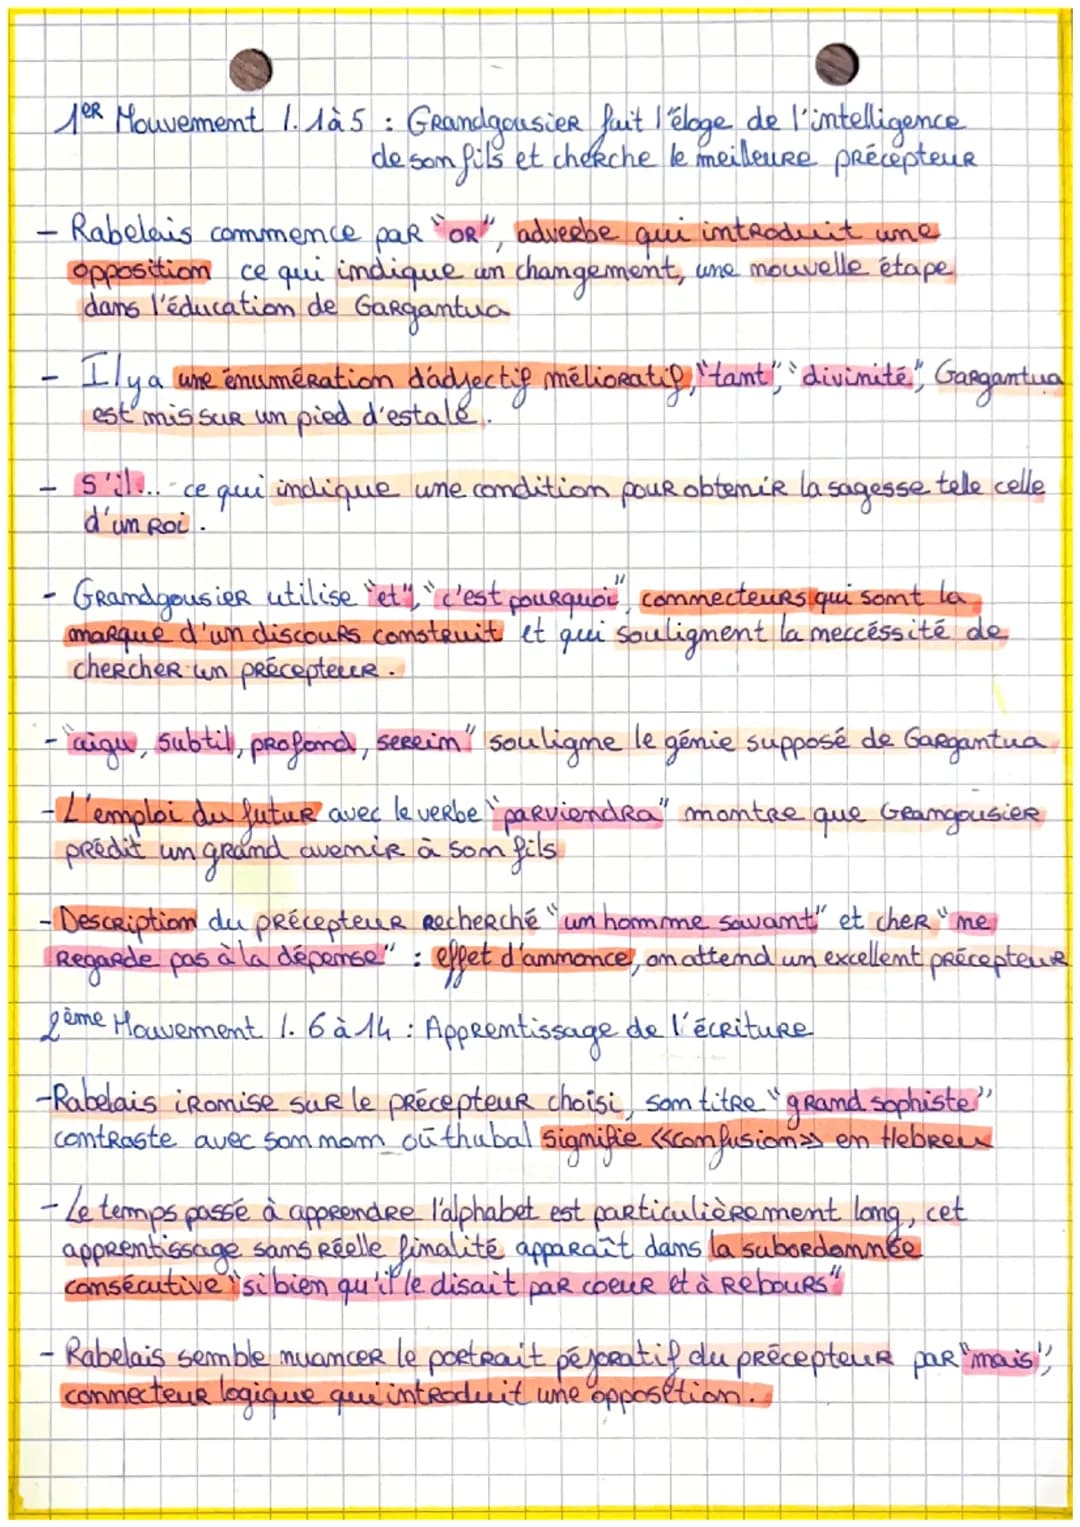 1er Mouvement l. 1 à 5 : Grandgousier fait l'éloge de l'intelligence
de son fils et cherche le meilleure précepteur
- Rabelais commence par "or", adverbe qui introduit une
opposition ce qui indique un changement, une nouvelle étape
dans l'éducation de Gargantua
- Il y a une énumération d'adjectif mélioratif, "tant", "divinité", Gargantua
est mis sur un pied d'estale.
- S'il... ce qui indique une condition pour obtenir la sagesse tele celle
d'un Roi.
- Grandgousier utilise "et", "c'est pourquoi", connecteurs qui sont la
marque d'un discours construit et qui souligment la neccéssité de
chercher un précepteur.
- "aigu, subtil, profond, serein" souligne le génie supposé de Gargantua
- L'emploi du futur avec le verbe "parviendra" montre que Grangousier
prédit un grand avenir à son fils
- Description du précepteur recherché "un homme savant" et cher "ne
regarde pas à la dépense" : effet d'annonce, on attend un excellent précepteur
2ème Mouvement l. 6 à 14 : Apprentissage de l'écriture
- Rabelais ironise sur le précepteur choisi, son titre "grand sophiste"
contraste avec son nom où thubal signifie «confusion» en Hebreu
- Le temps passé à apprendre l'alphabet est particulièrement long, cet
apprentissage sans réelle finalité apparaît dans la subordonnée
consécutive "si bien qu'il le disait par coeur et à rebours"
- Rabelais semble nuancer le portrait péjoratif du précepteur par "mais",
connecteur logique qui introduit une opposition.